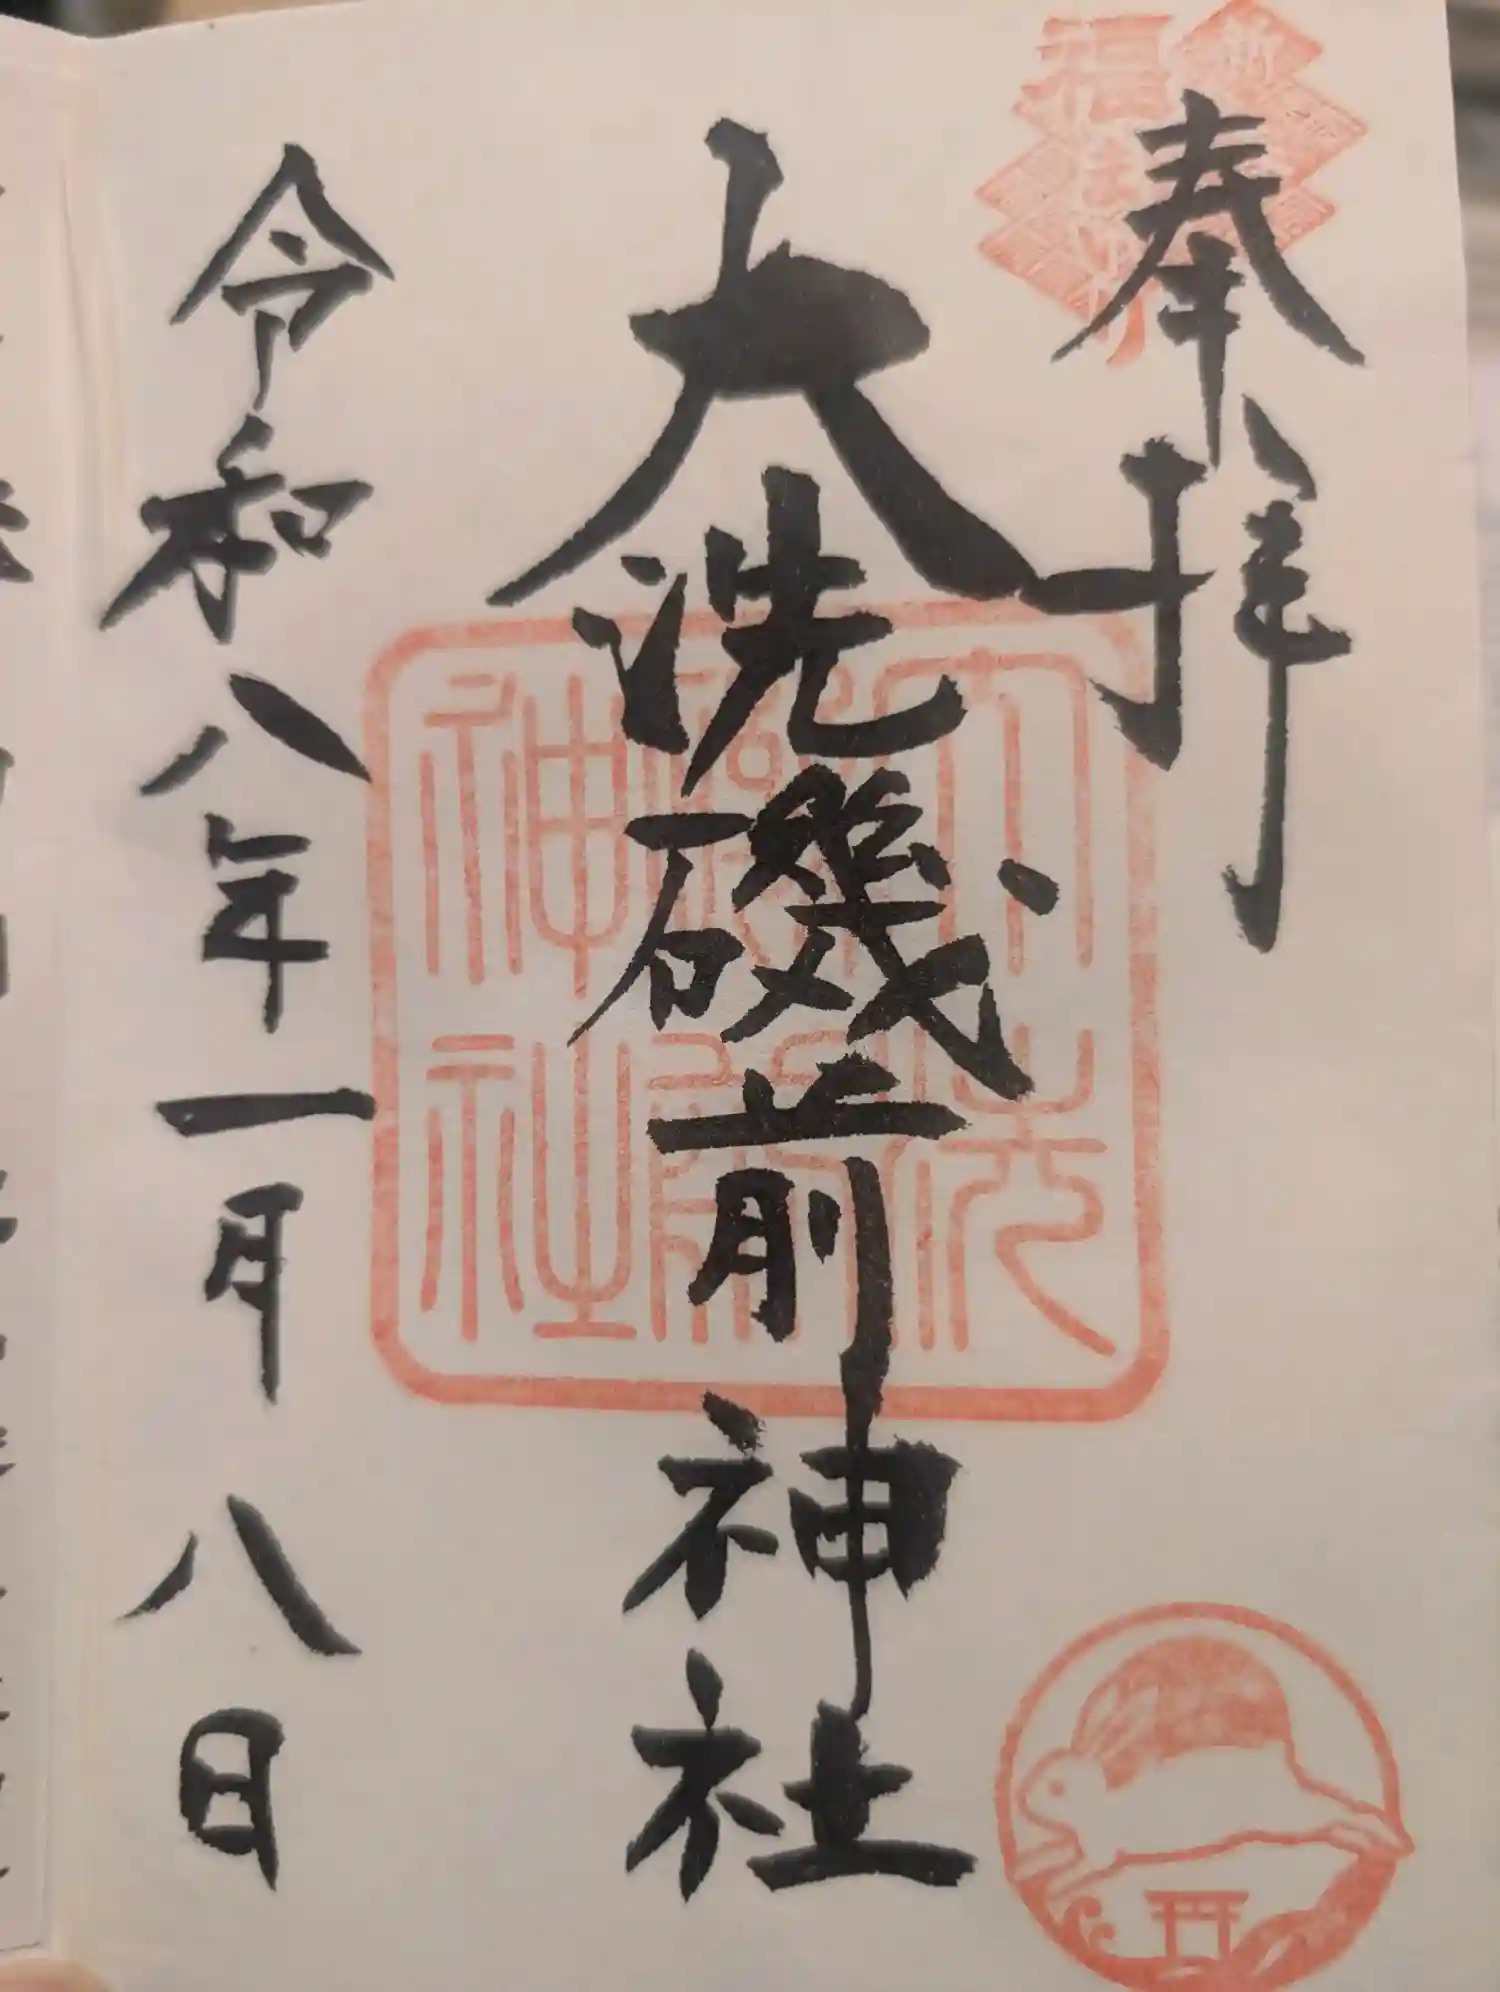 奉拝
大洗磯前神社
令和八年一月八日
大洗
磯前
神社
福